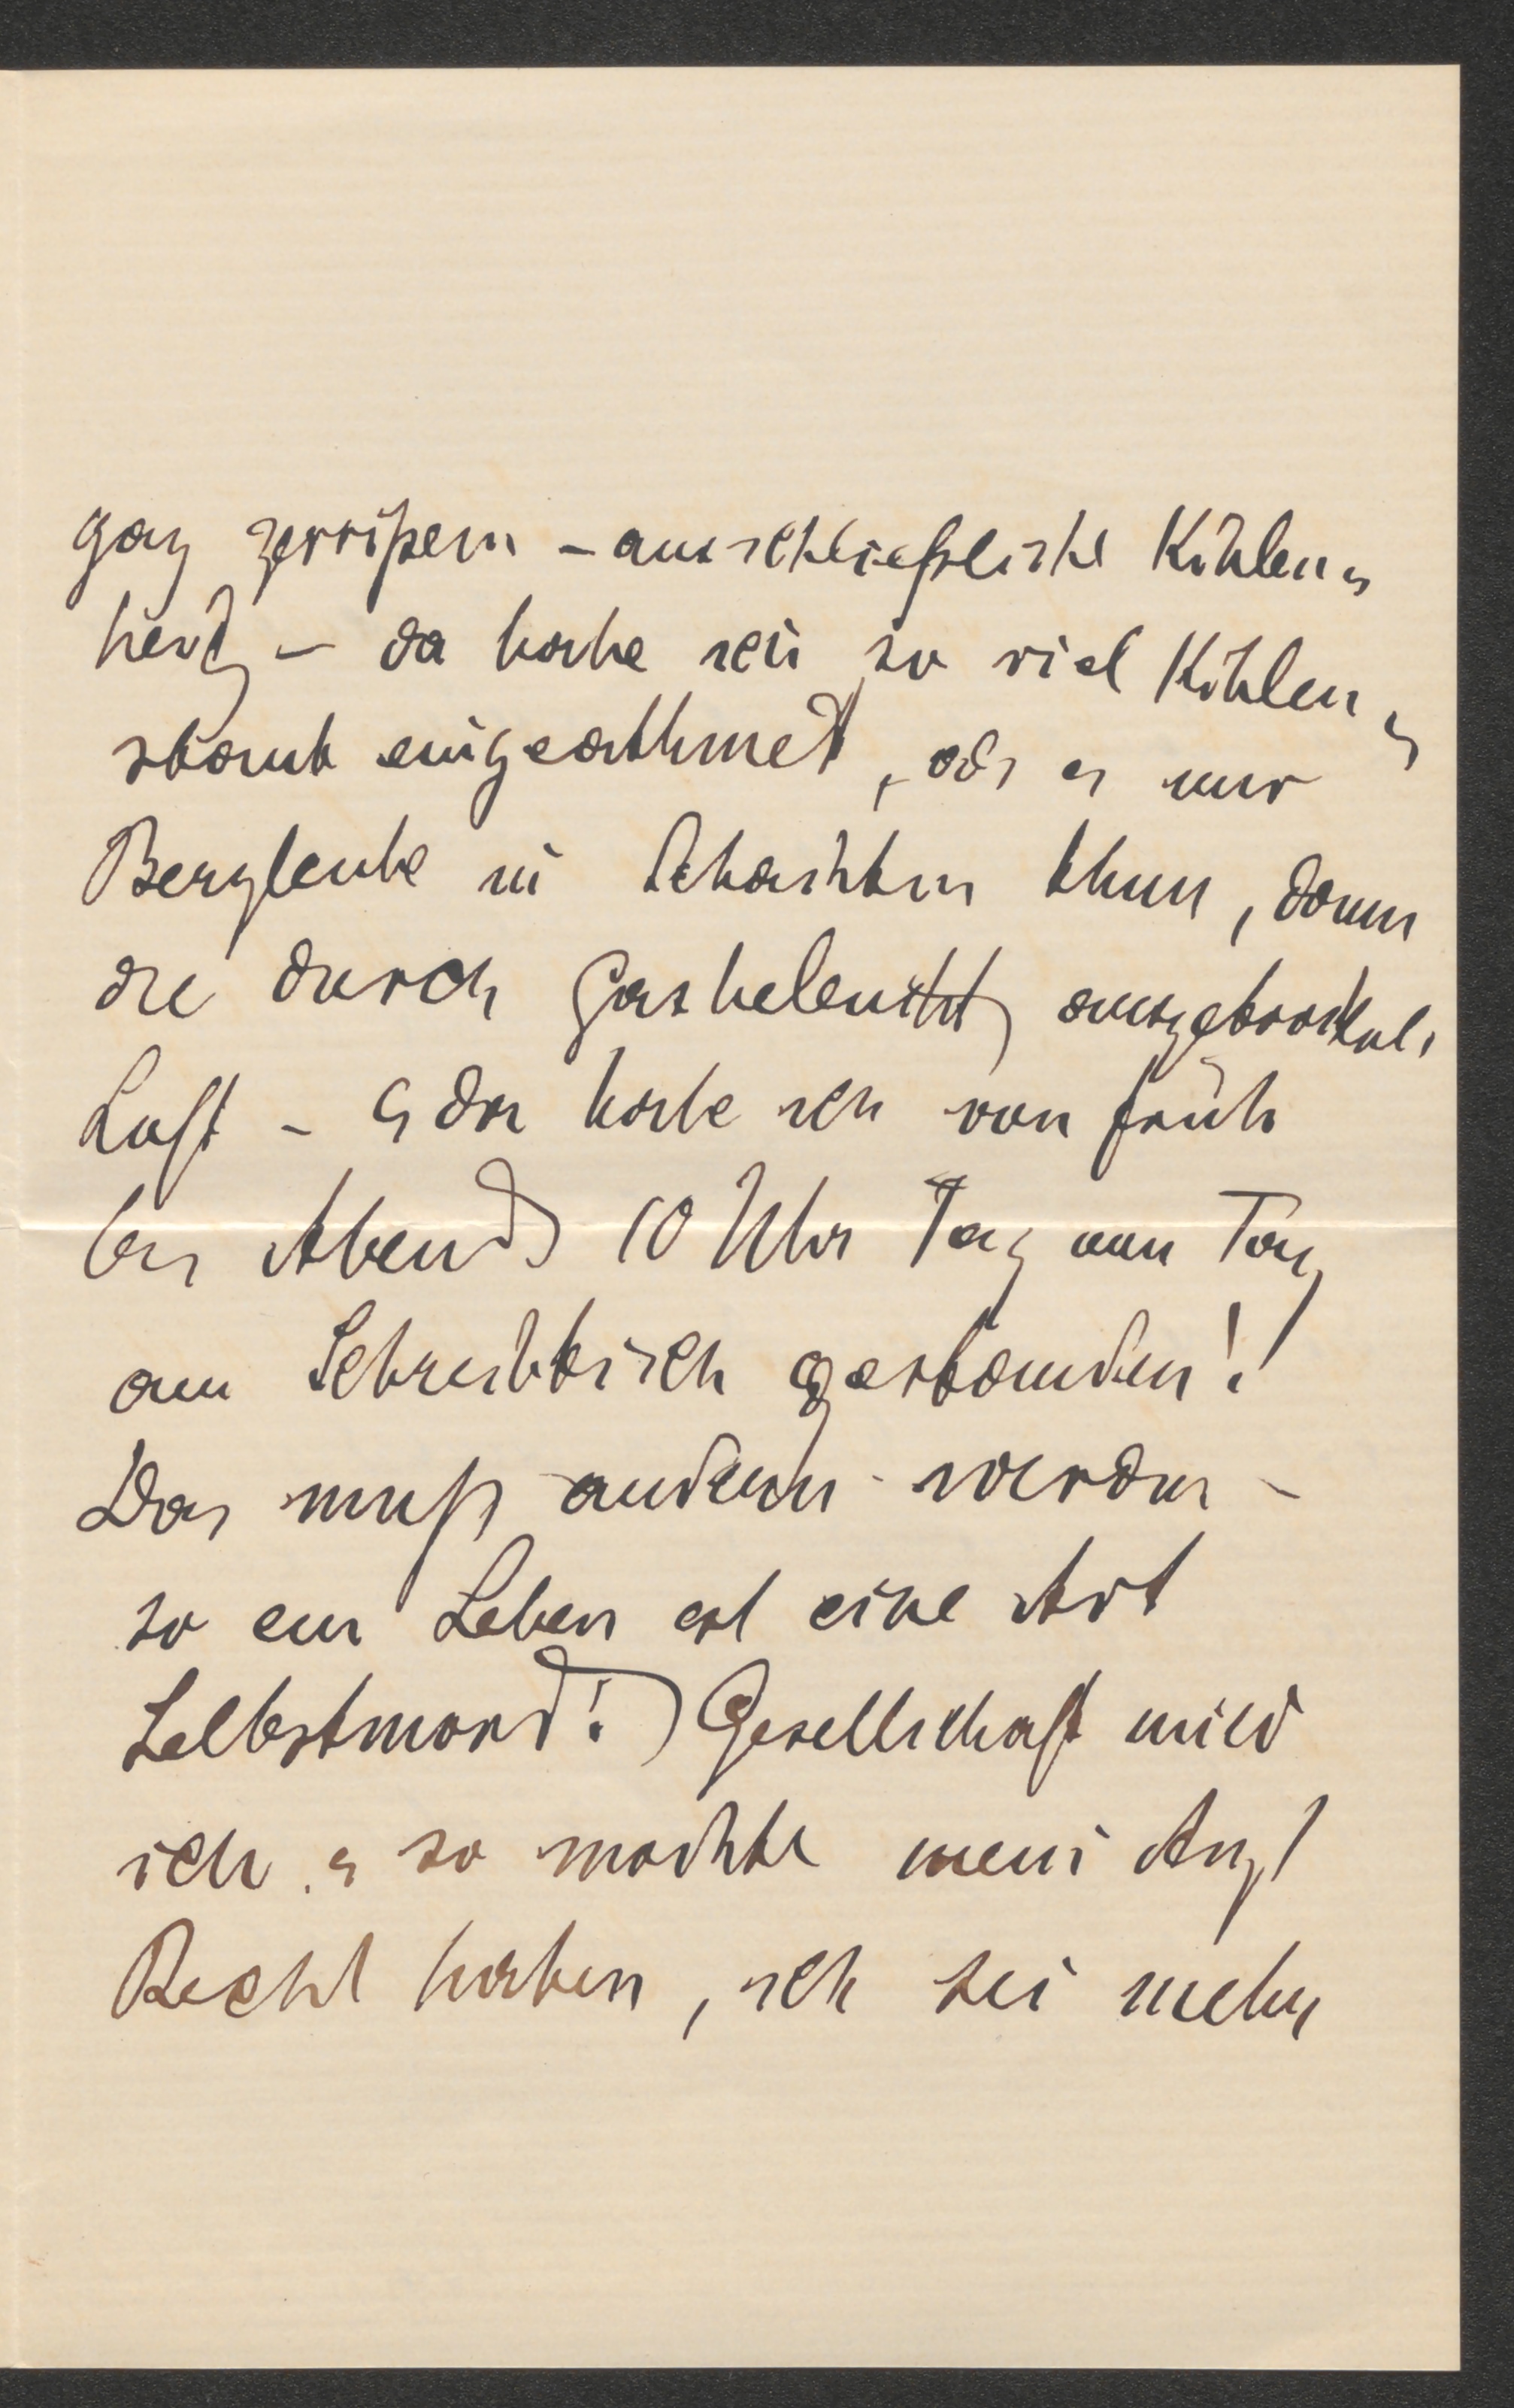 ganz zerrißen – ausschließliche Kohlen-
heizg – da habe ich so viel Kohlen-
staub eingeathmet, als es nur
Bergleute in Schachten thun, dann
die durch Gasbeleuchtg ausgetrocknete
Luft – u da habe ich von früh
bis Abends 10 Uhr Tag um Tag
am Schreibtisch gestanden!
Das muß anders werden –
so ein Leben ist eine Art
Selbstmord! Gesellschaft mied
ich u so mochte mein Arzt
Recht haben, ich sei mehr